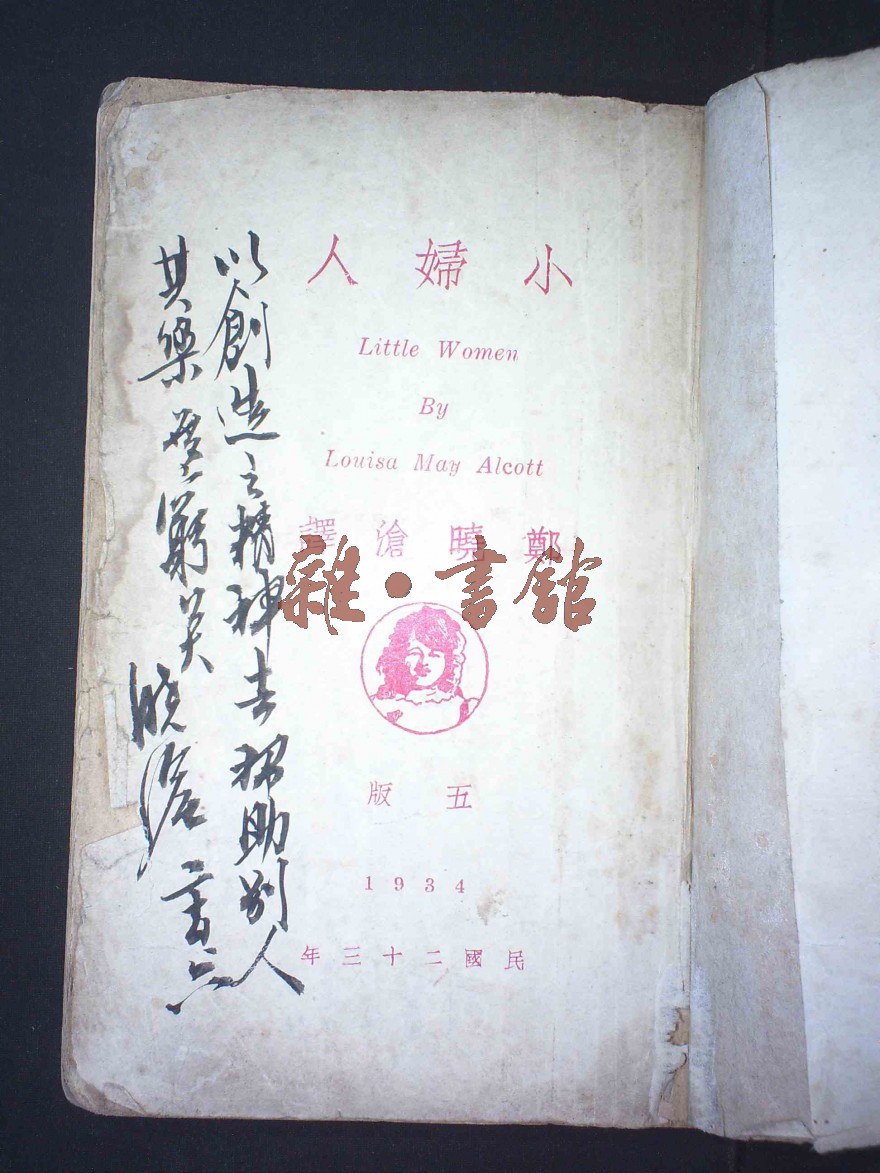 小婦人
Little Women
By
Louisa May Alcott
鄭曉滄譯
雜·書館
五版
1934
民國二十三年
以創造之精神去助別人
其樂無窮矣
曉滄